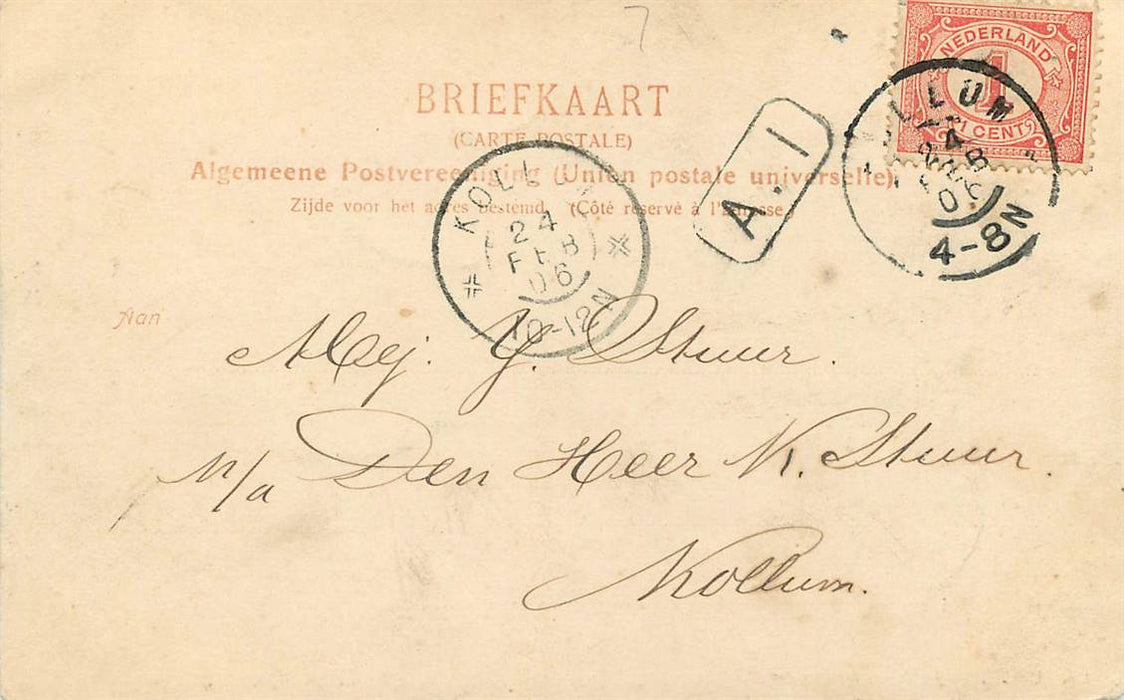 7
NEDERLAND
1
1 CENT
BRIEFKAART
(CARTE POSTALE)
Algemeene Postvereeniging (Union postale universelle).
Zijde voor het adres bestemd. (Côté réservé à l'adresse.)
KOLLUM
24
FEB
06
10-12N
A. 1
LLUM
4
FEB
06
4-8N
Aan
Mej. Y. Stuur.
Den Heer K. Stuur.
Kollum.